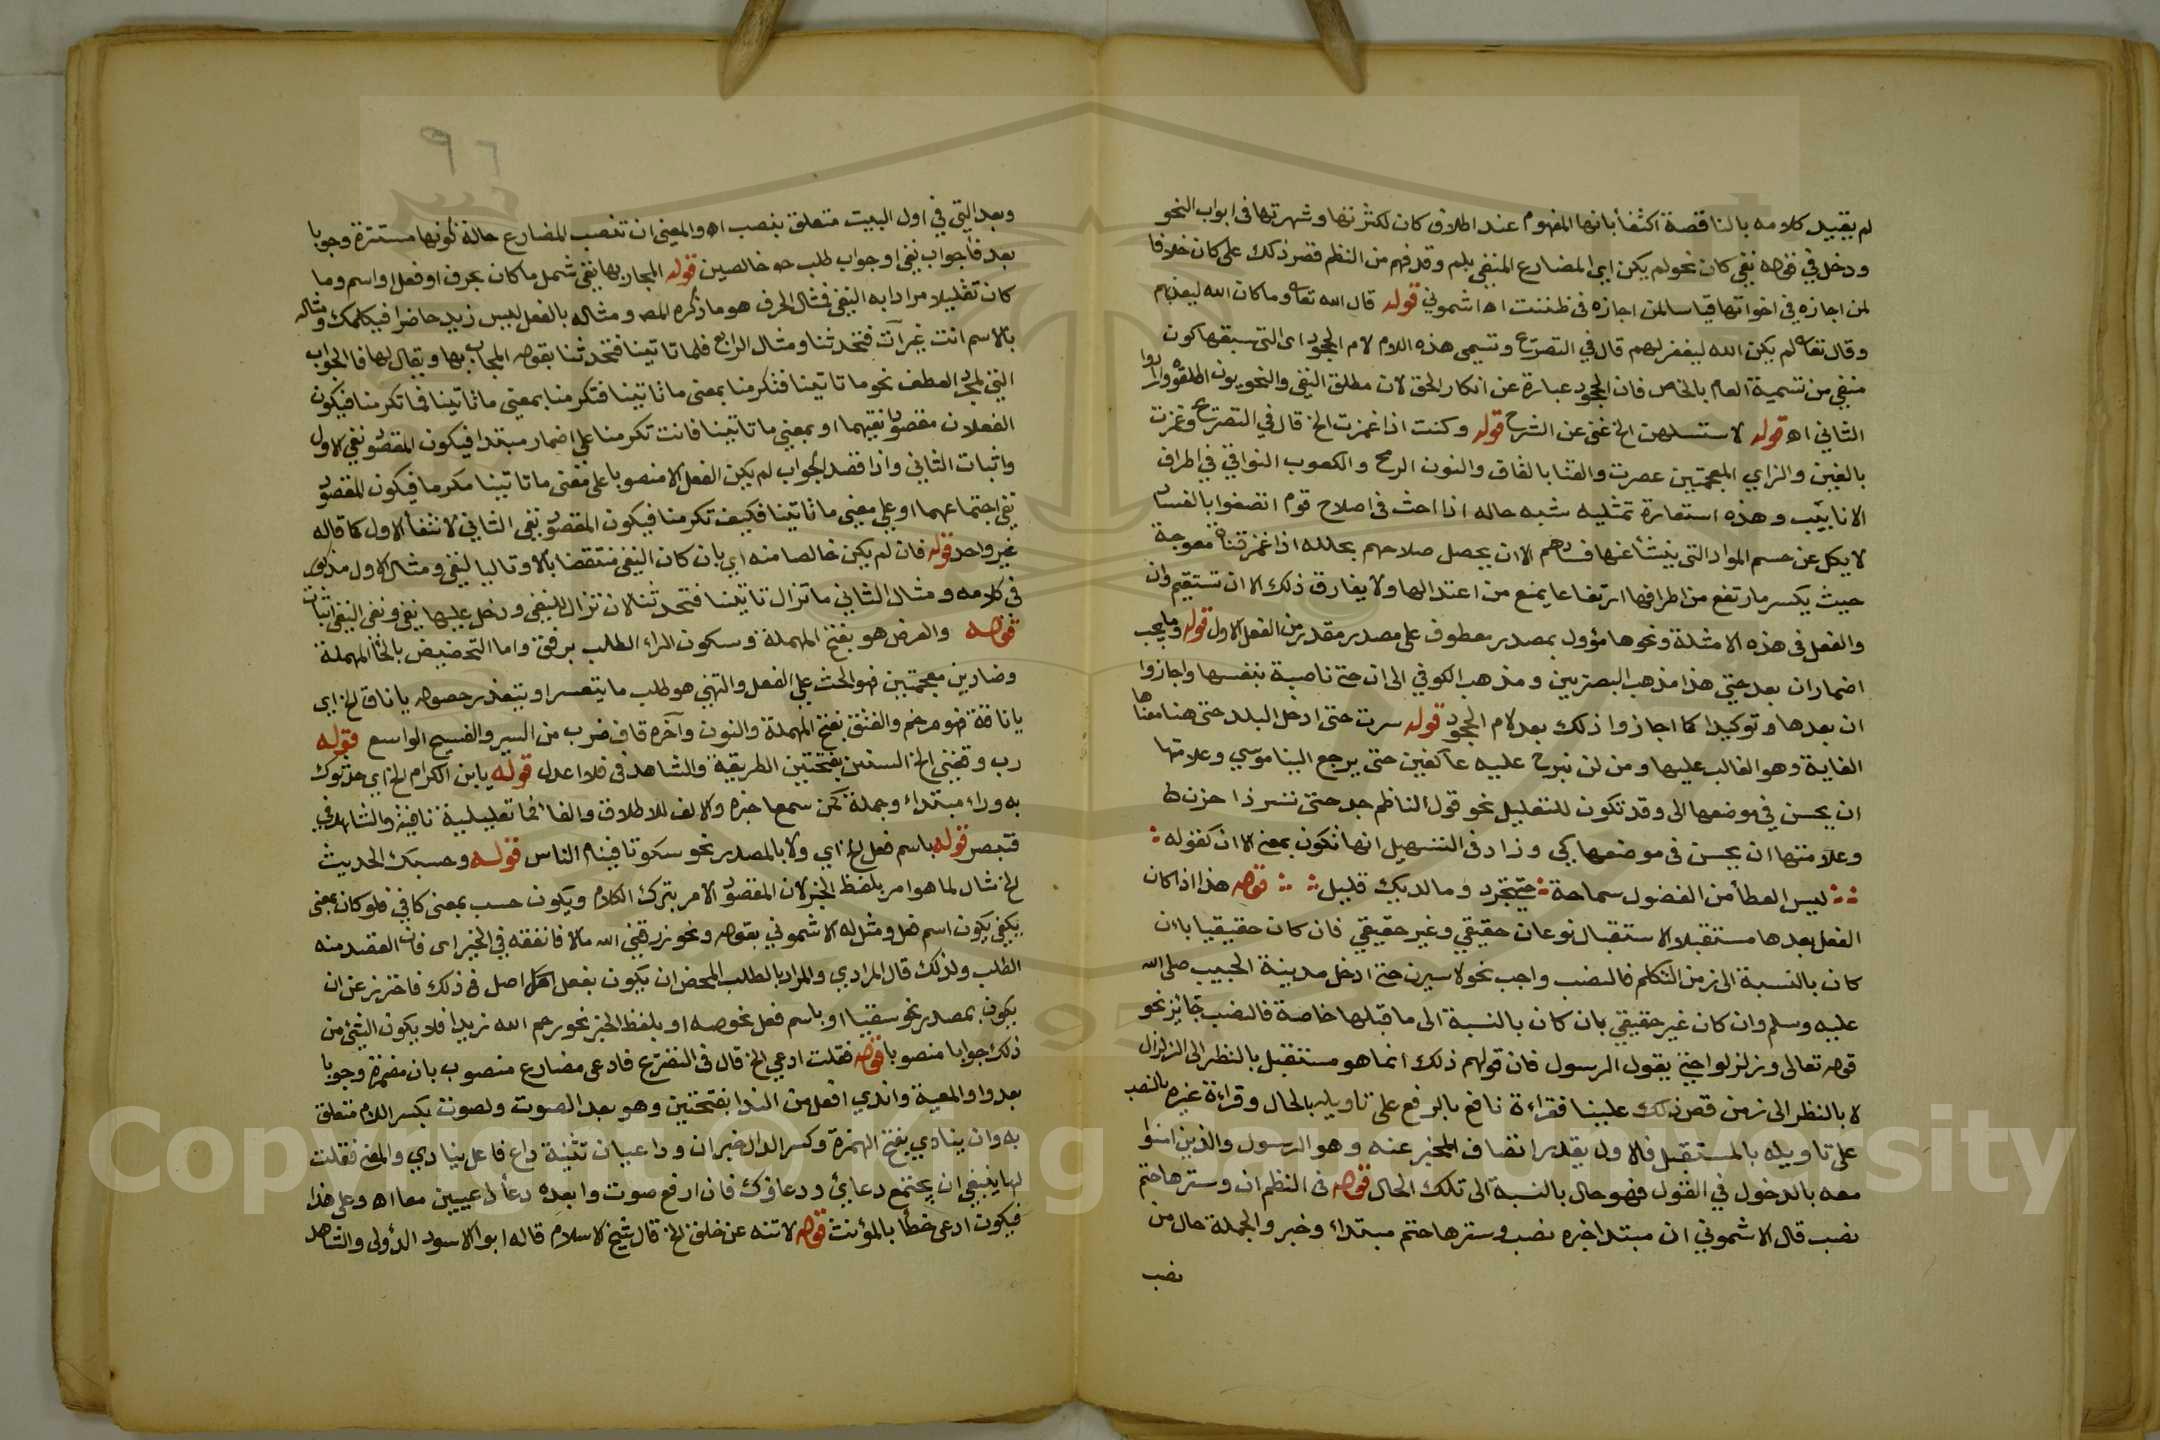 لم يقيد كلامه بالناقصة اكتفأ بانها المفهوم عند اطلاق كان لكثرتها وشهرتها في ابواب النحو
ودخل في قوله نفي كان نحو لم يكن اي المضارع المنفي بلم وقد فهم من النظم قصر ذلك على كان خلافا
لمن اجازه في اخواتها قياسا لمن اجازه في ظننت اه اشموني قوله قال الله تعا وما كان الله ليعذبهم
وقال تعا لم يكن الله ليغفر لهم قال في التصريح وتسمى هذه اللام لام الجحود اي التي سبقها كون
منفي من تسمية العام بالخاص فان الجحود عبارة عن انكار الحق لان مطلق النفي والنحويون اطلقوه وارادوا
الثاني اه قوله لاستسلهن الخ غنى عن الشرح قوله وكنت اذا غمزت الخ قال في التصريح وغمزت
بالغين والزاي المعجمتين عصرت والقنا بالقاف والنون الرمح والكعوب النواقي في اطراف
الانابيب وهذه استعارة تمثليه شبه حاله اذا احث في اصلاح قوم اتصفوا بالفساد
لا يكل عن حسم المواد التي ينشأ عنها فسادهم الا ان يحصل صلاحهم بحاله اذا غمز قناة معوجة
حيث يكسر ما رتفع من اطرافها ارتفاعا يمنع من اعتدالها ولا يفارق ذلك الا ان تستقيم وان
والفعل في هذه الامثلة ونحوها مؤول بمصدر معطوف على مصدر مقدر من الفعل الاول قوله وما يجب
اضمار ان بعد حتى هذا مذهب البصريين ومذهب الكوفي الى ان حتى ناصبة بنفسها واجازوا
ان بعدها وتوكيدا كما اجازوا ذلك بعد لام الجحود قوله سرت حتى ادخل البلد حتى هنا معناها
الغاية وهو الغالب عليها ومن لن نبرح عليه عاكفين حتى يرجع الينا موسي وعلامتها
ان يحسن في موضعها الى وقد تكون للتعليل نحو قول الناظم جد حتى تسر ذا حزن ط
وعلامتها ان يحسن في موضعها كي وزاد في التسهيل انها تكون بمعنى الا ان كقوله
ليس العطأ من الفضول سماحة حتى تجود وما لديك قليل قوله هذا اذا كان
الفعل بعدها مستقبلا الاستقبال نوعان حقيقي وغير حقيقي فان كان حقيقيا بان
كان بالنسبة الى زمن التكلم فالنصب واجب نحو لاسيرن حتى ادخل مدينة الحبيب صلى الله
عليه وسلم وان كان غير حقيقي بان كان بالنسبة الى ما قبلها خاصة فالنصب جائز نحو
قوله تعالى وزلزلوا حتى يقول الرسول فان قولهم ذلك انما هو مستقبل بالنظر الى الزلزال
لا بالنظر الى زمن قص ذلك علينا فقراءة نافع بالرفع على تاويله بالحال وقراءة غيره بالنصب
على تاويله بالمستقبل فالاول يقدر اتصاف المخبر عنه وهو الرسول والذين امنوا
معه بالدخول في القول فهو حال بالنسبة الى تلك الحال قوله في النظم ان وسترها حتم
نصب قال الاشموني ان مبتدا خبره نصب وسترها حتم مبتداء وخبر والجملة حال من
نصب
٩٦
وبعد التي في اول البيت متعلق بنصب اه والمعنى ان تنصب المضارع حالة كونها مستترة وجوبا
بعد فأ جواب نفي او جواب طلب حه خالصين قوله المجاز بها نفي شمل ما كان بحرف او فعل او اسم وما
كان تقليلا مرادا به النفي فمثال الحرف هو ما ذكره المصه ومثاله بالفعل ليس زيد حاضرا فيكلمك ومثاله
بالاسم انت غير آت فتحدثنا ومثال الرابع قلما تاتينا فتحدثنا بقوله المجاب بها ويقال لها فا الجواب
التي لمجرد العطف نحو ما تاتينا فتكرمنا بمعنى ما تاتينا فتكرمنا بمعنى ما تاتينا فما تكرمنا فيكون
الفعلان مقصود نفيهما او بمعنى ما تاتينا فانت تكرمنا على اضمار مبتدا فيكون المقصود نفي الاول
واثبات الثاني واذا قصد الجواب لم يكن الفعل الا منصوبا على معنى ما تاتينا مكرما فيكون المقصود
نفي اجتماعهما او على معنى ما تاتينا فكيف تكرمنا فيكون المقصود نفي الثاني لانتفأ الاول كما قاله
غير واحد قوله فان لم يكن خالصا منه اي بان كان النفي منتقضا بالا وتاليا لنفي ومثال الاول مذكور
في كلامه ومثال الثاني ما تزال تاتينا فتحدثنا لان تزال للنفي ودخل عليها نفي ونفي النفي اثبات
قوله والعرض هو بفتح المهملة وسكون الراء الطلب برفق واما التحضيض بالحا المهملة
وضادين معجمتين فهو الحث على الفعل والتمني هو طلب ما يتعسر او يتعذر حصوله يا ناق الخ اي
يا ناقة فهو مرخم والعنق بفتح المهملة والنون وآخره قاف ضرب من السير والفسيح الواسع قوله
رب وفقني الخ السنن بفتحتين الطريقة والشاهد في فلا اعدل قوله يا ابن الكرام الخ اي حدثوك
به وراء مبتداء وجملة كمن سمعا خبره والالف للاطلاق والفا تعليلية نافية والشاهد في
فتبصر قوله باسم فعل الخ اي ولا بالمصدر نحو سكوتا فينام الناس قوله وحسبك الحديث
الخ مثال لما هو امر بلفظ الخبر لان المقصود الامر بترك الكلام ويكون حسب بمعنى كافي فلو كان بمعنى
يكفي يكون اسم فعل ومثل له الاشموني بقوله ونحو رزقني الله مالا فانفقه في الخير اي فان القصد منه
الطلب ولذلك قال المرادي والمراد بالطلب المحض ان يكون بفعل اصل في ذلك فاحترز عن ان
يكون بمصدر نحو سقيا او باسم فعل نحو صه او بلفظ الخبر نحو رحم الله زيدا فلا يكون الشئ من
ذلك جوابا منصوبا قوله فقلت ادعي الخ قال في التصريح فادعى مضارع منصوب بان مضمرة وجوبا
بعد واو المعية واندي افعل من الندا بفتحتين وهو بعد الصوت ولصوت بكسر اللام متعلق
به وان ينادي بفتح الهمزة وكسر الدال خبر ان وداعيان تثنية داع فاعل ينادي والمعنى فقلت
لها ينبغي ان يجتمع دعاءي ودعاؤك فان ارفع صوت وابعده دعأ داعيين معا اه وعلى هذا
فيكون ادعى خطأ بالمؤنث قوله لا تنه عن خلق الخ قال شيخ الاسلام قاله ابو الاسود الدؤلي والشاهد
Copyright © King Saud University